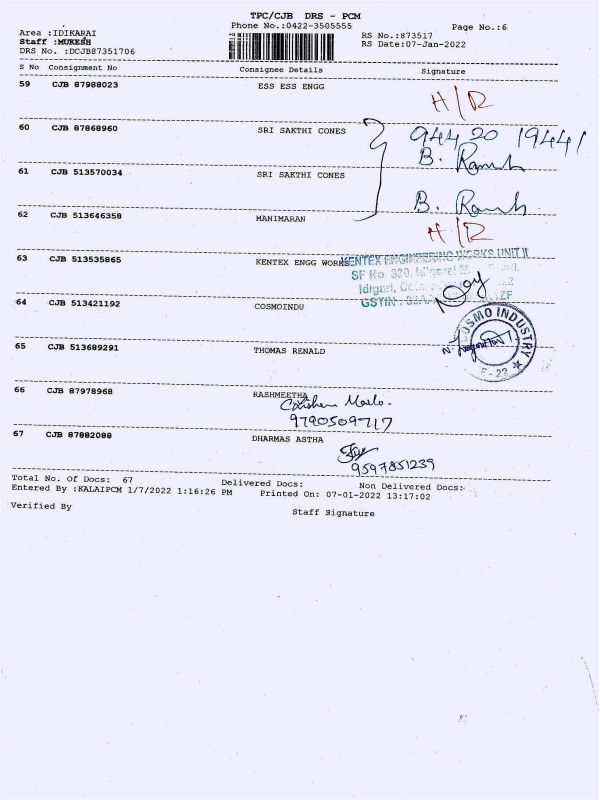 TPC/CJB DRS - PCM
Phone No.:0422-3505555
Page No.:6
Area :IDIKARAI
Staff :MUKESH
DRS No. :DCJB87351706
RS No.:873517
RS Date:07-Jan-2022
S No Consignment No Consignee Details Signature
59 CJB 87988023 ESS ESS ENGG
H/R
60 CJB 87868960 SRI SAKTHI CONES
944 20 19441
B. Ramesh
61 CJB 513570034 SRI SAKTHI CONES
B. Ramesh
62 CJB 513646358 MANIMARAN
H/R
63 CJB 513535865 KENTEX ENGG WORKS
KENTEX ENGINEERING WORKS UNIT II
SF No. 320, Idigarai
Idigari,
GSTIN : 33AA
64 CJB 513421192 COSMOINDU
COSMO INDUSTRY
65 CJB 513689291 THOMAS RENALD
66 CJB 87978968 RASHMEETHA
9790509717
67 CJB 87882088 DHARMAS ASTHA
9597851239
Total No. Of Docs: 67 Delivered Docs: Non Delivered Docs:
Entered By :KALAIPCM 1/7/2022 1:16:26 PM Printed On: 07-01-2022 13:17:02
Verified By Staff Signature